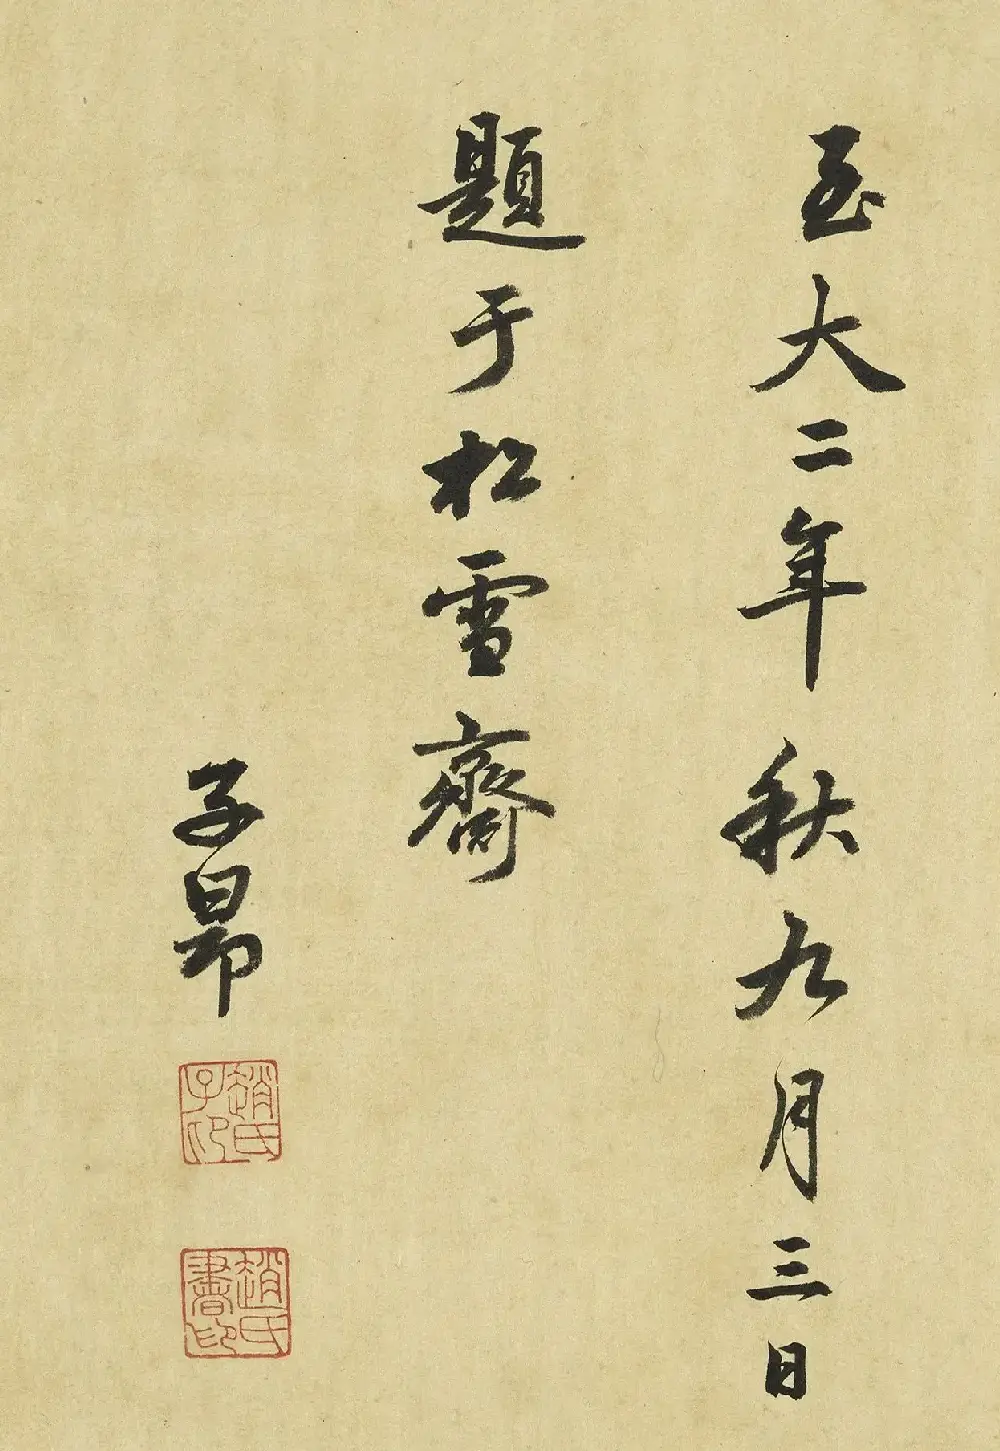 至大二年秋九月三日
題于松雪齋
子昂
趙氏子印
趙氏書印